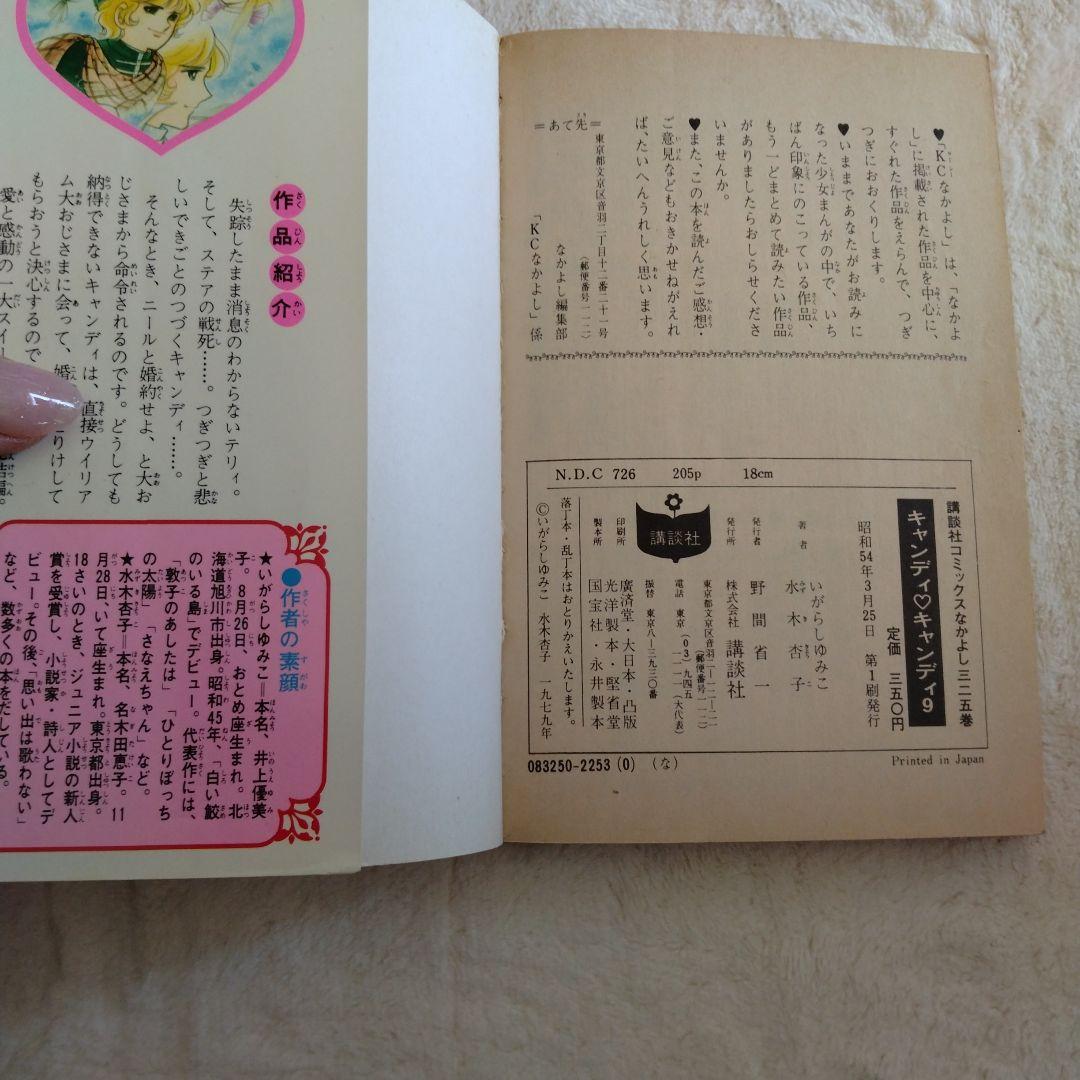 ♥「KCなかよし」は、「なかよ
し」に掲載された作品を中心に、
すぐれた作品をえらんで、つぎ
つぎにおおくりします。
♥いままであなたがお読みに
なった少女まんがの中で、いち
ばん印象にのこっている作品、
もう一どまとめて読みたい作品
がありましたらおしらせくださ
いませんか。
♥また、この本を読んだご感想・
ご意見などもおきかせねがえれ
ば、たいへんうれしく思います。
＝あて先＝
東京都文京区音羽二丁目十二番二十一号
(郵便番号一一二)
なかよし編集部
「KCなかよし」係
N.D.C 726 205p 18cm
講談社コミックスなかよし 三二五巻
キャンディ♡キャンディ9
昭和54年3月25日 第1刷発行
定価 三五〇円
著者 いがらしゆみこ
水木杏子
発行者 野間省一
発行所 株式会社 講談社
東京都文京区音羽二―一二―二一
(郵便番号一一二)
電話 東京(03)九四五―一一一一(大代表)
振替 東京八―三九三〇番
講談社
印刷所 廣済堂・大日本・凸版
製本所 光洋製本・堅省堂
国宝社・永井製本
落丁本・乱丁本はおとりかえいたします。
©いがらしゆみこ 水木杏子 一九七九年
083250-2253(0) (な)
Printed in Japan
作品紹介
失踪したまま消息のわからないテリィ。
そして、ステアの戦死……。つぎつぎと悲
しいできごとのつづくキャンディ……。
そんなとき、ニールと婚約せよ、と大お
じさまから命令されるのです。どうしても
納得できないキャンディは、直接ウイリア
ム大おじさまに会って、婚 りけして
もらおうと決心するので
愛と感動の一大スイー
●作者の素顔
★いがらしゆみこ＝本名、井上優美
子。8月26日、おとめ座生まれ。北
海道旭川市出身。昭和45年、「白い鮫
のいる島」でデビュー。代表作には、
「敦子のあしたは」「ひとりぼっち
の太陽」「さなえちゃん」など。
★水木杏子＝本名、名木田恵子。11
月28日、いて座生まれ。東京都出身。
18さいのとき、ジュニア小説の新人
賞を受賞し、小説家・詩人としてデ
ビュー。その後、「思い出は歌わない」
など、数多くの本をだしている。